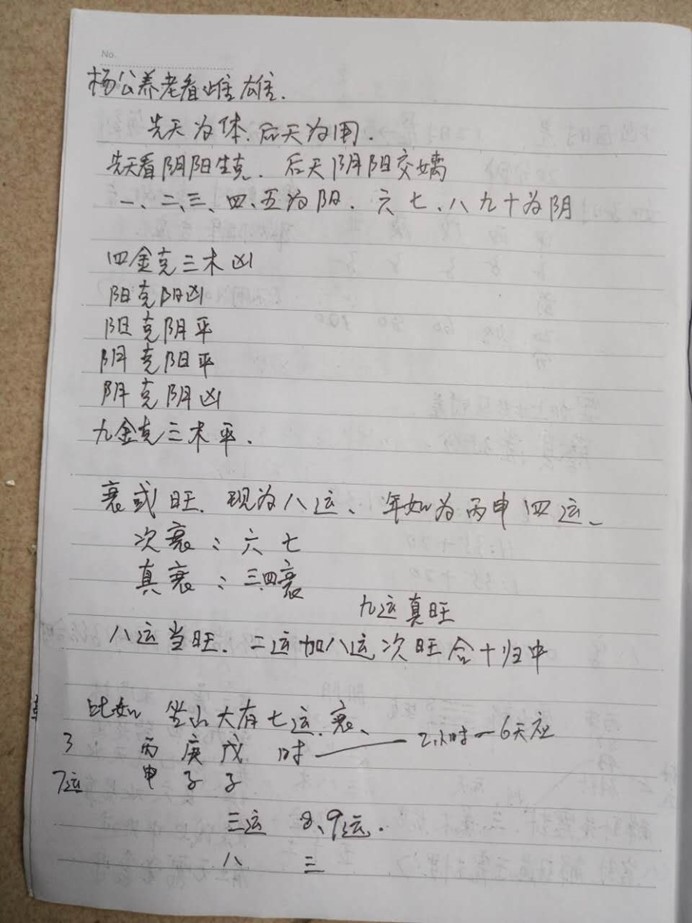 No.
杨公养老看雌雄.
先天为体.后天为用.
先天看阴阳生克. 后天阴阳交媾
一、二、三、四、五为阳. 六 七、八 九 十为阴
四金克三木凶
阳克阳凶
阳克阴平
阴克阳平
阴克阴凶
九金克三木平.
衰或旺. 现为八运、年如为丙申四运、
次衰:六 七
真衰:三四衰
九运真旺
八运当旺. 二运加八运次旺合十归中
比如 坐山大有七运.衰、
3 丙 庚 戊 时 —— 2小时—6天应
7运 申 子 子
三运 8、9运.
八 三